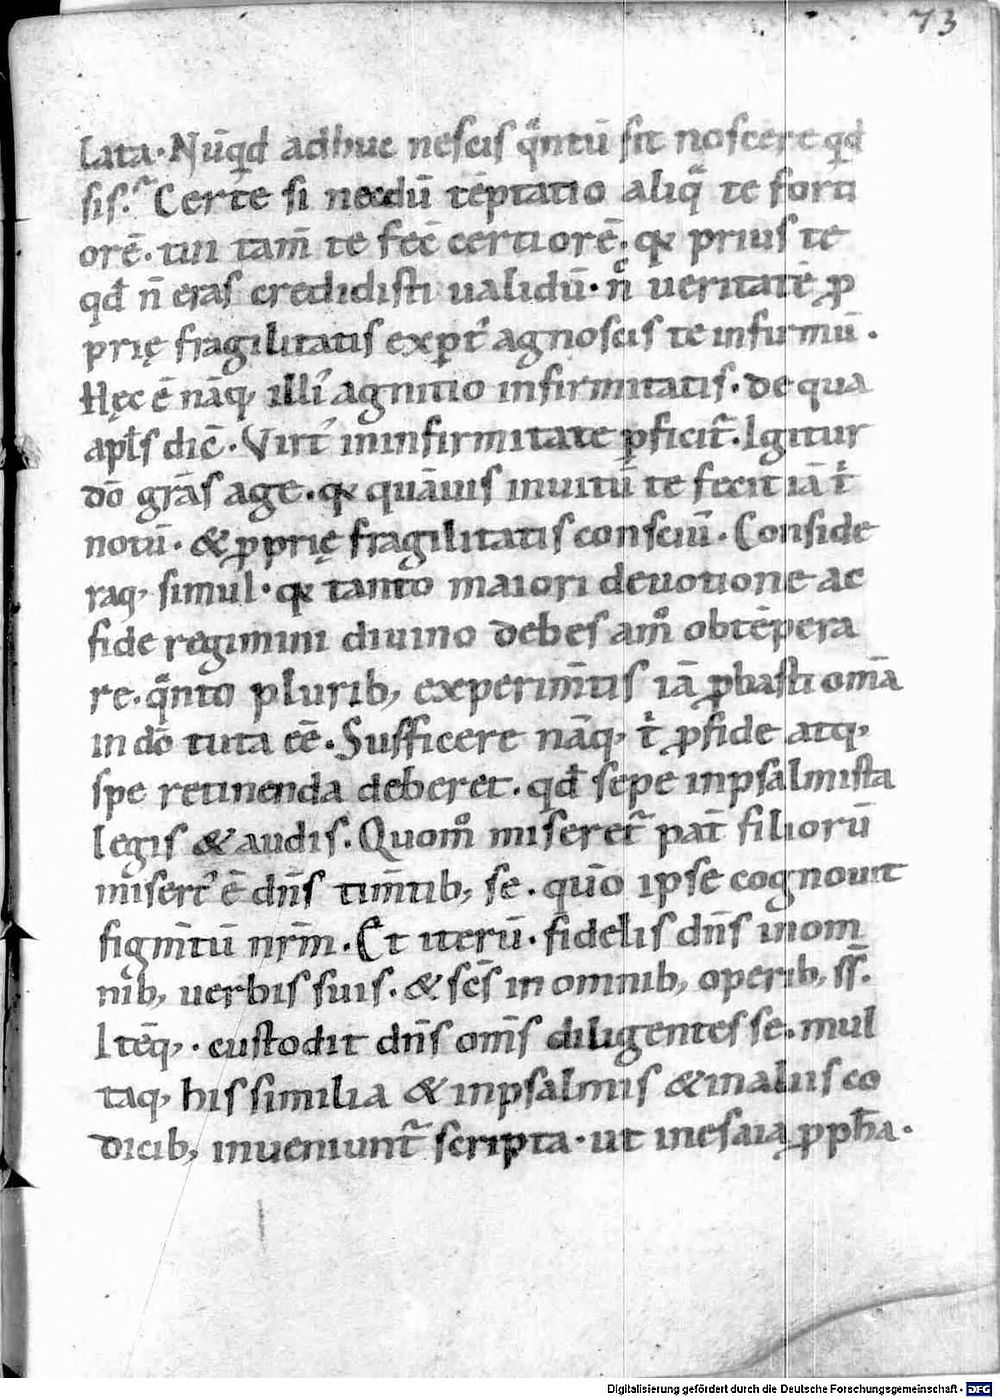 73
lata. Nūqd adhuc nescis qͣntū sit noscere qd
sis? Certe si necdū tēptatio aliqͣ te forti
orē. tm̄ tam̄ te fec̄ certiorē. qꝛ prius te
qđ n̄ eras credidisti ualidū. n̄c ueritatē ꝓ
prię fragilitatis expt᷒ agnoscis te infirmū.
Hęc ē nāq; illi᷒ agnitio infirmitatis. de qua
apl̄s dic̄. Virt᷒ in infirmitate ꝑficit᷑. Igitur
dō grās age. qꝛ quāuis inuitū te fecit iā t̄
notū. & ꝓprię fragilitatis consciū. Conside
raq; simul. qꝛ tanto maiori deuotione ac
fide regimini diuino debes am̊ obtēpera
re. qͣnto plurib; experim̄tis iā ꝓbasti om̄a
in dō tuta eē. Sufficere nāq; t̄ ꝓ fide atq;
spe retinenda deberet. qđ sepe in psalmista
legis & audis. Quom̊ miseret᷑ pat̄ filiorū
misert᷒ ē dn̄s tim̄tib; se. qūo ipse cognouit
figm̄tū nr̄m. Et iterū. fidelis dn̄s in om
nib; uerbis suis. & sc̄s in omnib; operib; ss̄.
Itēq;. custodit dn̄s om̄s diligentes se. mul
taq; his similia & in psalmis & in aliis co
dicib; inueniunt᷑ scripta. ut in esaia ꝓpħa.
Digitalisierung gefördert durch die Deutsche Forschungsgemeinschaft - DFG